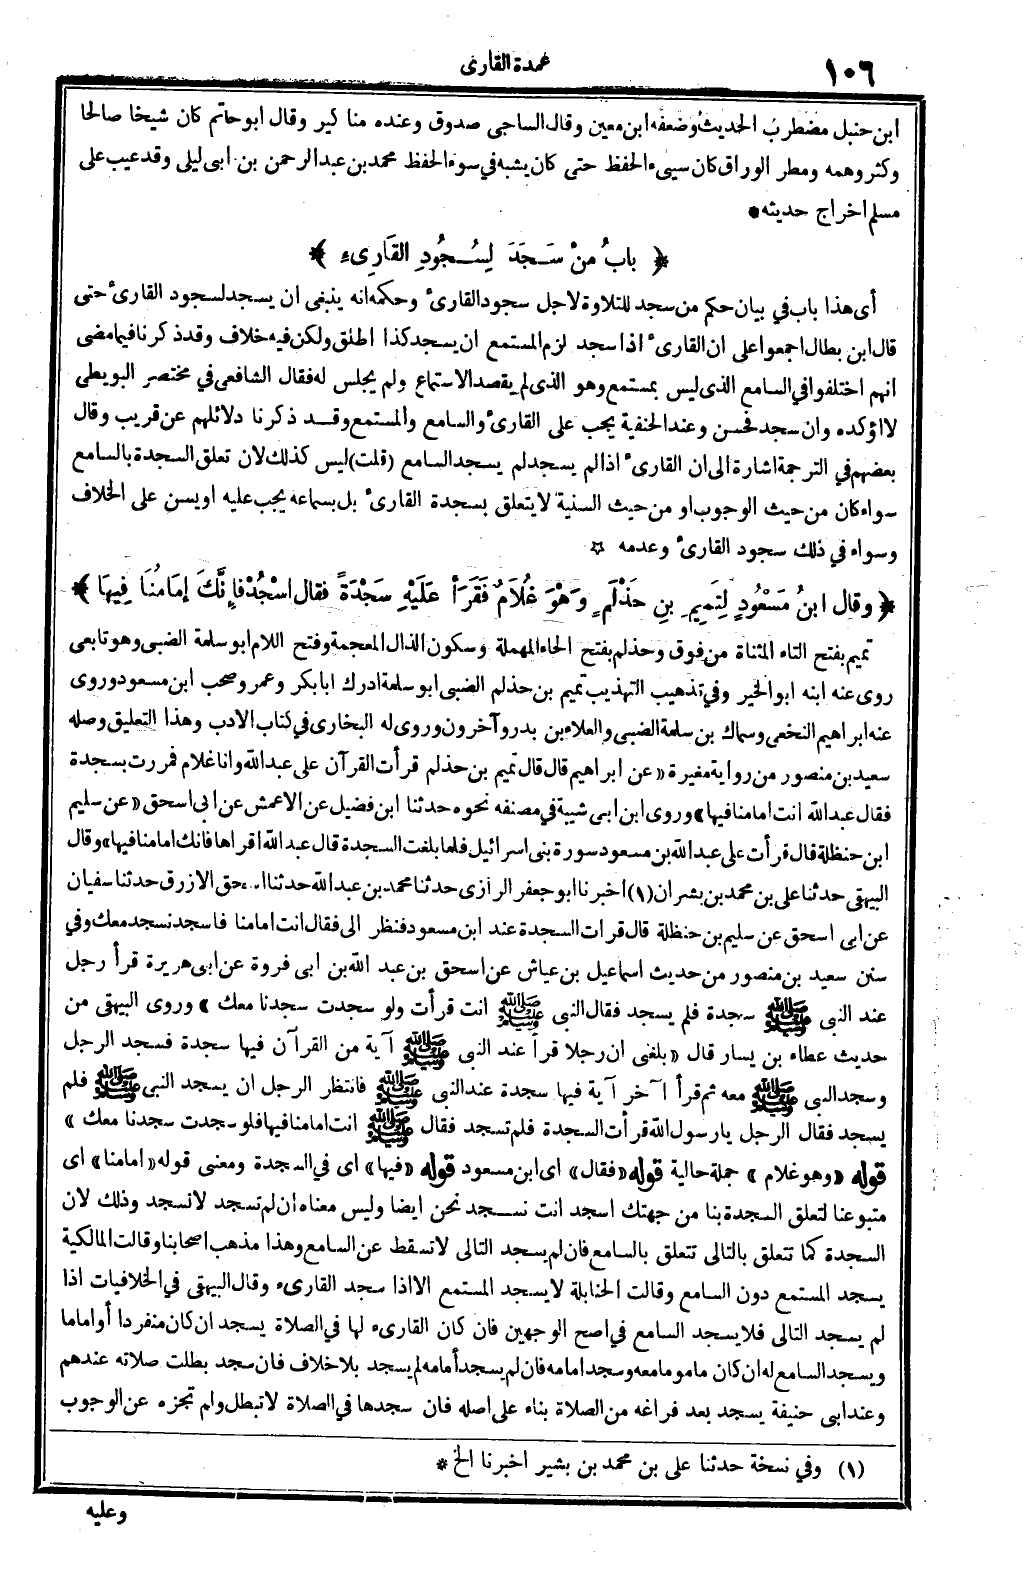 ١٠٦
عمدة القارى
ابن حنبل مضطرب الحديث وضعفه ابن معين وقال الساجى صدوق وعنده مناكير وقال ابو حاتم كان شيخا صالحا
وكثر وهمه ومطر الوراق كان سيىء الحفظ حتى كان يشبه في سوء الحفظ محمد بن عبد الرحمن بن ابى ليلى وقد عيب على
مسلم اخراج حديثه *
﴿ بابُ منْ سَجَدَ لِسُجُودِ القَارِىء ﴾
أى هذا باب في بيان حكم من سجد للتلاوة لاجل سجود القارىء وحكمه انه ينبغى ان يسجد لسجود القارىء حتى
قال ابن بطال اجمعوا على ان القارىء اذا سجد لزم المستمع ان يسجد كذا اطلق ولكن فيه خلاف وقد ذكرنا فيما مضى
انهم اختلفوا في السامع الذى ليس بمستمع وهو الذى لم يقصد الاستماع ولم يجلس له فقال الشافعى في مختصر البويطى
لا اؤكده وان سجد فحسن وعند الحنفية يجب على القارىء والسامع والمستمع وقد ذكرنا دلائلهم عن قريب وقال
بعضهم في الترجمة اشارة الى ان القارىء اذا لم يسجد لم يسجد السامع (قلت) ليس كذلك لان تعلق السجدة بالسامع
سواء كان من حيث الوجوب او من حيث السنية لا يتعلق بسجدة القارىء بل بسماعه يجب عليه او يسن على الخلاف
وسواء في ذلك سجود القارىء وعدمه ☆
﴿ وقال ابنُ مَسْعُودٍ لِتَمِيمِ بنِ حَذْلَمٍ وَهْوَ غُلاَمٌ فَقَرَأَ عَلَيْهِ سَجْدَةً فقال اسْجُدْ فإنَّكَ إمَامُنَا فِيهَا ﴾
تميم بفتح التاء المثناة من فوق وحذلم بفتح الحاء المهملة وسكون الذال المعجمة وفتح اللام ابو سلمة الضبى وهو تابعى
روى عنه ابنه ابو الخير وفي تذهيب التهذيب تميم بن حذلم الضبى ابو سلمة ادرك ابا بكر وعمر وصحب ابن مسعود وروى
عنه ابراهيم النخعى وسماك بن سلمة الضبى والعلاء بن بدر وآخرون وروى له البخارى في كتاب الادب وهذا التعليق وصله
سعيد بن منصور من رواية مغيرة «عن ابراهيم قال قال تميم بن حذلم قرأت القرآن على عبد الله وانا غلام فمررت بسجدة
فقال عبد الله انت امامنا فيها» وروى ابن ابى شيبة في مصنفه نحوه حدثنا ابن فضيل عن الاعمش عن ابى اسحق «عن سليم
ابن حنظلة قال قرأت على عبد الله بن مسعود سورة بنى اسرائيل فلما بلغت السجدة قال عبد الله اقراها فانك امامنا فيها» وقال
البيهقى حدثنا على بن محمد بن بشران (١) اخبرنا ابو جعفر الرازى حدثنا محمد بن عبد الله حدثنا اسحق الازرق حدثنا سفيان
عن ابى اسحق عن سليم بن حنظلة قال قرات السجدة عند ابن مسعود فنظر الى فقال انت امامنا فاسجد نسجد معك وفي
سنن سعيد بن منصور من حديث اسماعيل بن عياش عن اسحق بن عبد الله بن ابى فروة عن ابى هريرة قرأ رجل
عند النبى ﷺ سجدة فلم يسجد فقال النبى ﷺ انت قرأت ولو سجدت سجدنا معك » وروى البيهقى من
حديث عطاء بن يسار قال «بلغنى ان رجلا قرأ عند النبى ﷺ آية من القرآن فيها سجدة فسجد الرجل
وسجد النبى ﷺ معه ثم قرأ آخر آية فيها سجدة عند النبى ﷺ فانتظر الرجل ان يسجد النبى ﷺ فلم
يسجد فقال الرجل يا رسول الله قرأت السجدة فلم تسجد فقال ﷺ انت امامنا فيها فلو سجدت سجدنا معك »
قوله «وهو غلام » جملة حالية قوله «فقال» اى ابن مسعود قوله «فيها» اى في السجدة ومعنى قوله «امامنا» اى
متبوعنا لتعلق السجدة بنا من جهتك اسجد انت نسجد نحن ايضا وليس معناه ان لم تسجد لا نسجد وذلك لان
السجدة كما تتعلق بالتالى تتعلق بالسامع فان لم يسجد التالى لا تسقط عن السامع وهذا مذهب اصحابنا وقالت المالكية
يسجد المستمع دون السامع وقالت الحنابلة لا يسجد المستمع الا اذا سجد القارىء وقال البيهقى في الخلافيات اذا
لم يسجد التالى فلا يسجد السامع في اصح الوجهين فان كان القارىء لها في الصلاة يسجد ان كان منفردا أو اماما
ويسجد السامع له ان كان ماموما معه وسجد امامه فان لم يسجد أمامه لم يسجد بلا خلاف فان سجد بطلت صلاته عندهم
وعند ابى حنيفة يسجد بعد فراغه من الصلاة بناء على اصله فان سجدها في الصلاة لا تبطل ولم تجزه عن الوجوب
(١) وفي نسخة حدثنا على بن محمد بن بشير اخبرنا الخ *
وعليه